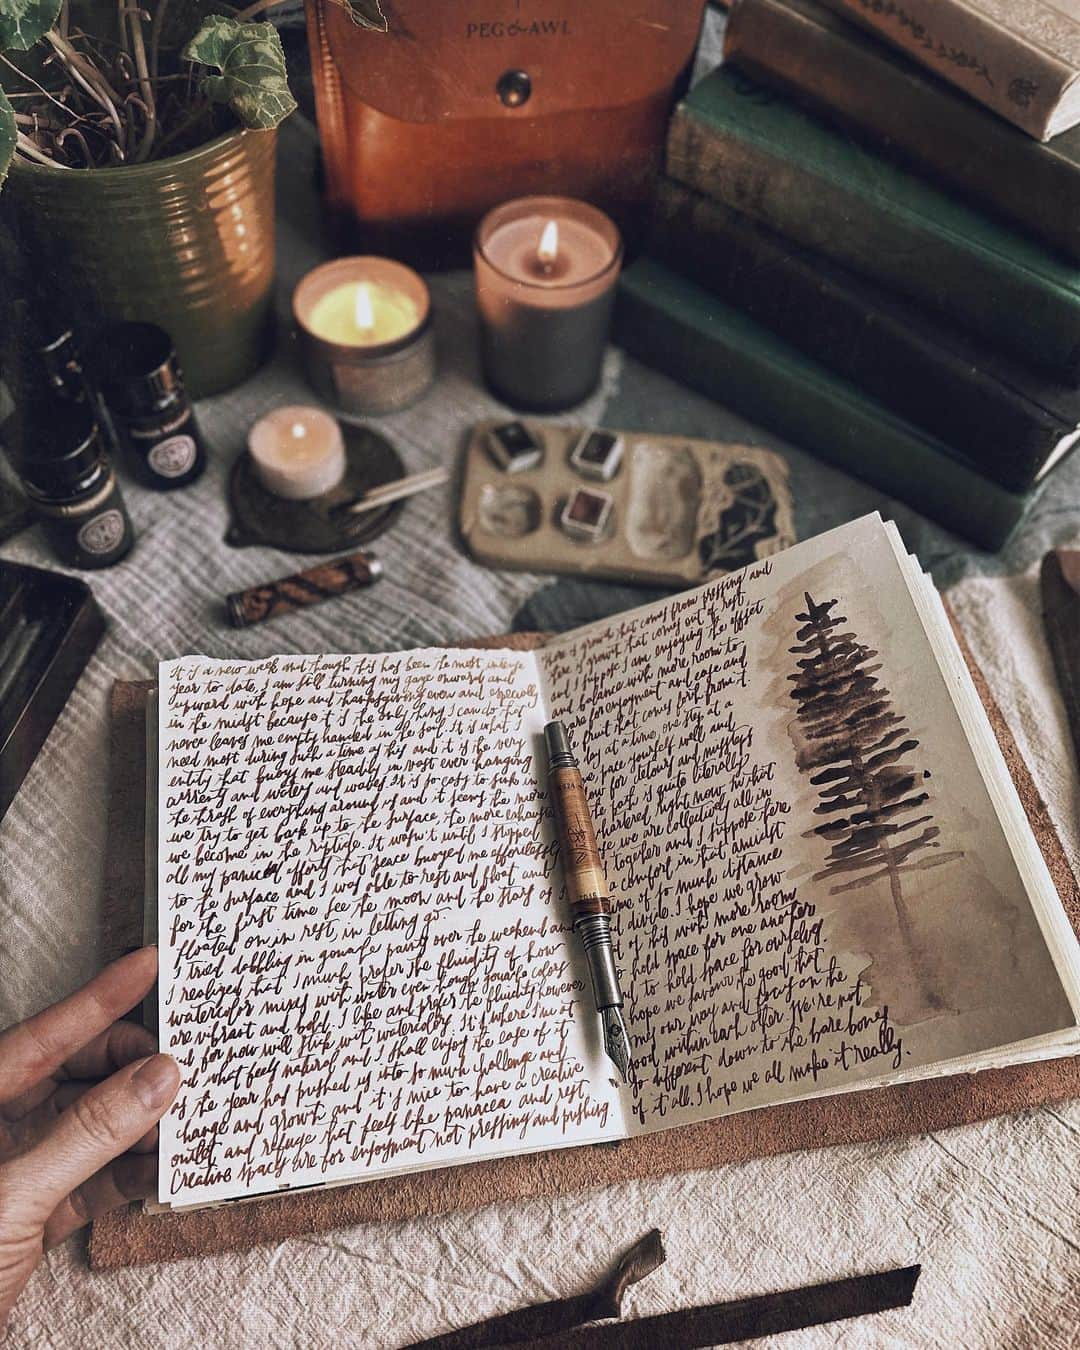 PEG & AWL
It is a new week and though this has been the most intense
year to date, I am still turning my gaze onward and
upward with hope and thanksgiving even and especially
in the midst because it is the only thing I can do that
never leaves me empty handed in the soul. It is what I
need most during such a time as this and it is the very
entity that buoys me steadily in vast ever changing
currents and waters and waves. It is so easy to sink in
the thrash of everything around us and it seems the more
we try to get back up to the surface, the more exhausted
we become in the riptide. It wasn't until I stopped
all my panicked efforts that peace buoyed me effortlessly
to the surface and I was able to rest and float and
for the first time see the moon and the stars as I
floated on in rest, in letting go.
I tried dabbling in gouache paint over the weekend and
I realized that I much prefer the fluidity of how
watercolor mixes with water even though gouache colors
are vibrant and bold. I like and prefer the fluidity however
and for now will stick with watercolors. It's where I'm at
and what feels natural and I shall enjoy the ease of it
as the year has pushed us into so much challenge and
change and growth and it's nice to have a creative
outlet and refuge that feels like panacea and rest.
Creative spaces are for enjoyment not pressing and pushing.
There is growth that comes from pressing and
there is growth that comes out of rest
and I suppose I am enjoying the offset
and balance with more room to
care for enjoyment and ease and
fruit that comes forth from it.
by at a time, one step at a
pace yourself well and
for detours and missteps
the path is quite literally
chartered right now in what
we are collectively all in
together and I suppose there
a comfort in that amidst
time of so much distance
and divide. I hope we grow
out of this with more room
to hold space for one another
and to hold space for ourselves.
hope we favour the good that
comes our way and focus on the
good within each other. We're not
so different down to the bare bones
of it all. I hope we all make it really.